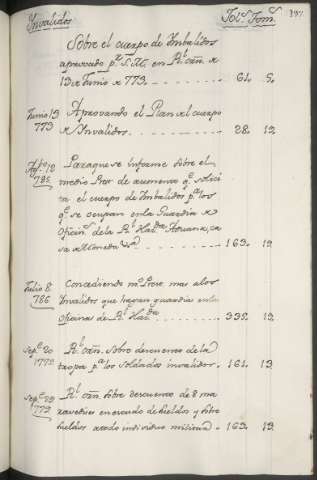 Invalidos Fol.s Tom.s 397
Sobre el cuerpo de Imbalidos
aprovado p.r S.M. en R.l orñ. de
13 de Junio de 773. 61. 5.
Junio 13 Aprovando el Plan del cuerpo
773 de Invalidos. 28. 12.
Para que se Informe sobre el
786. medio Real de aumento q.e solici
ta el cuerpo de Imbalidos p.a los
q.e se ocupan en la Guardia de
Oficin.s de la R.l Haz.da Aduana, ca
sa de Moneda &.a 163. 12.
Julio 8 Concediendo m.o Real mas a los
786 Invalidos que hagan guardias en la
Oficinas de R.l Haz.da 392. 12.
Sep.e 20 R.l orñ. Sobre descuento de la
1772 tropa p.a los Soldados invalidos. 161. 13.
Sep.e 29 R.l orñ sobre descuento de 8 ma
1772 ravedises en escudo de sueldos y sobre
sueldos a todo individuo militar. 163. 13.